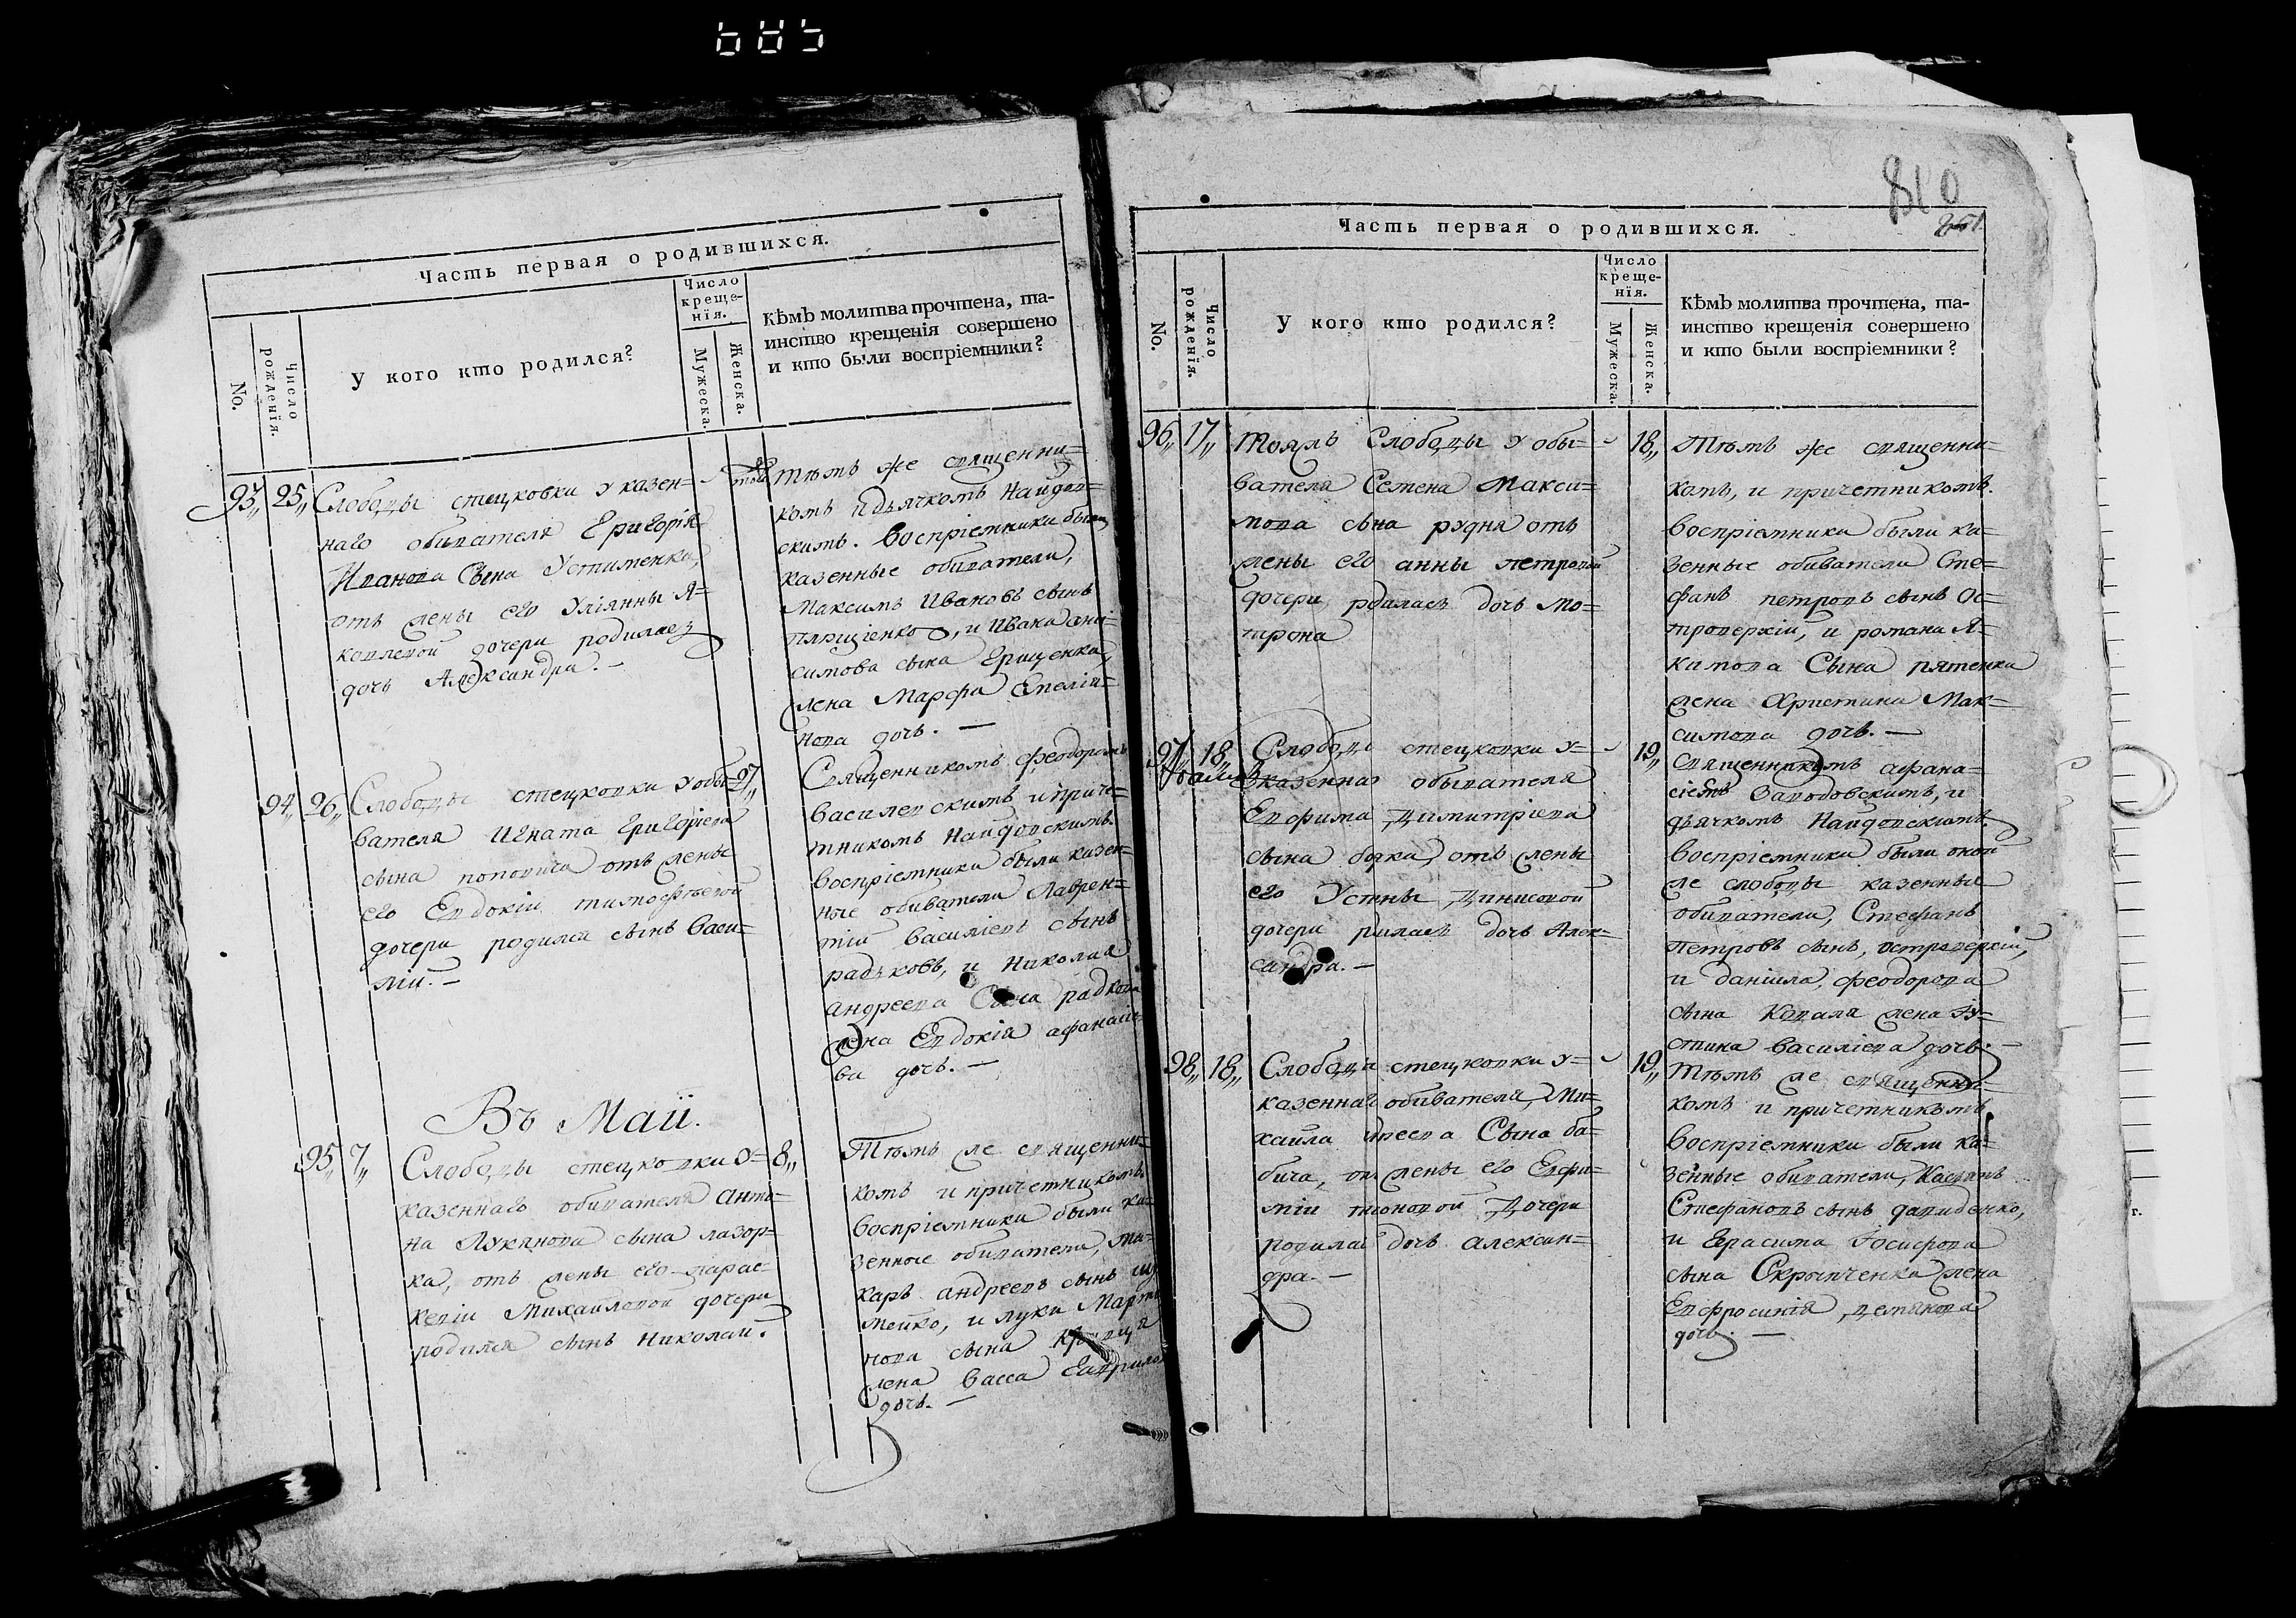 Часть первая о родившихся.
No.
Число рожденїя.
У кого кто родился?
Число
креще-
нїя.
Мужеска.
Женска.
Кѣмъ молитва прочтена, та-
инство крещенія совершено
и кто были воспріемники?
93 25 Слободы стецковки у казен-
наго обивателя Григорія
Иванова Сына Устименка,
отъ жены его Уліянны Я=
ковлевой дочери родилась
дочь Александра. —
Тѣмъ же священни=
комъ и дьячкомъ Найдов=
скимъ. Воспріемники были
казенные обиватели,
Максимъ Ивановъ сынъ
и Ивана они=
симова сына Грищенка,
жена Марфа Емелія=
нова дочь. —
94 26 Слободы стецковки у обы= 27
вателя Игната Григоріева
сына поповича отъ жены
его Евдокіи тимофѣевой
дочери родился сынъ Васи=
лій. —
Священникомъ феодоромъ
василевскимъ и приче=
тникомъ Найдовскимъ.
Воспріемники были казен=
ные обиватели Лаврен=
тій Василіевъ сынъ
радъковъ, и Николая
андреева Сына радкова
жена Евдокія афанасіе=
ва дочь. —
Въ Маїи.
95 7 Слободы стецковки у= 8
казеннаго обивателя Анто=
на Лукянова сына лазор=
ка, отъ жены его парас=
кевіи Михайловой дочери
родился сынъ Николай.
Тѣмъ же священни=
комъ и причетникомъ
Воспріемники были ка=
зенные обиватели, ма=
каръ андреевъ сынъ
и луки Марты=
нова сына
жена Васса Гаврилова
дочь. —
810
Часть первая о родившихся.
No.
Число рожденїя.
У кого кто родился?
Число
креще-
нїя.
Мужеска.
Женска.
Кѣмъ молитва прочтена, та-
инство крещенія совершено
и кто были воспріемники?
96 17 Тояжъ Слободы у обы= 18
вателя Семена Макси=
мова сына рудня отъ
жены его анны петровой
дочери рдилась дочь Мо=
трона
Тѣмъ же священни=
комъ, и причетникомъ.
Воспріемники были ка=
зенные обиватели Сте=
фанъ петровъ сынъ Ос=
троверхій, и романа Я=
кимова Сына пятенка
жена Христина Мак=
симова дочь. —
97 18 Слободы стецковки у= 19
казеннаг обывателя
Евфима Димитріева
сына божка, отъ жены
его Устины Динисовой
дочери рдилась дочь Алек=
сандра. —
Священникомъ афана=
сіемъ Заводовскимъ, и
дьячкомъ Найдовскимъ.
Воспріемники были оной
же слободы казенные
обиватели, Стефанъ
Петровъ сынъ, острове­рхій,
и даніила, феодорова
сына Коваля жена Іу=
стина Василіева дочь. —
98 18 Слободы стецковки у= 19
казеннаг обивателя, Ми=
хаила Сына ба=
бича, от жены его Евфи=
міи Дочери
родилас дочь алексан=
дра. —
Тѣмъ же священни=
комъ и причетникомъ
Воспріемники были ка=
зенные обиватели, Касіянъ
Стефановъ сынъ давиденко,
и Герасима Іосифова
сына Скрыпченка жена
Евфросинія, демянова
дочь. —